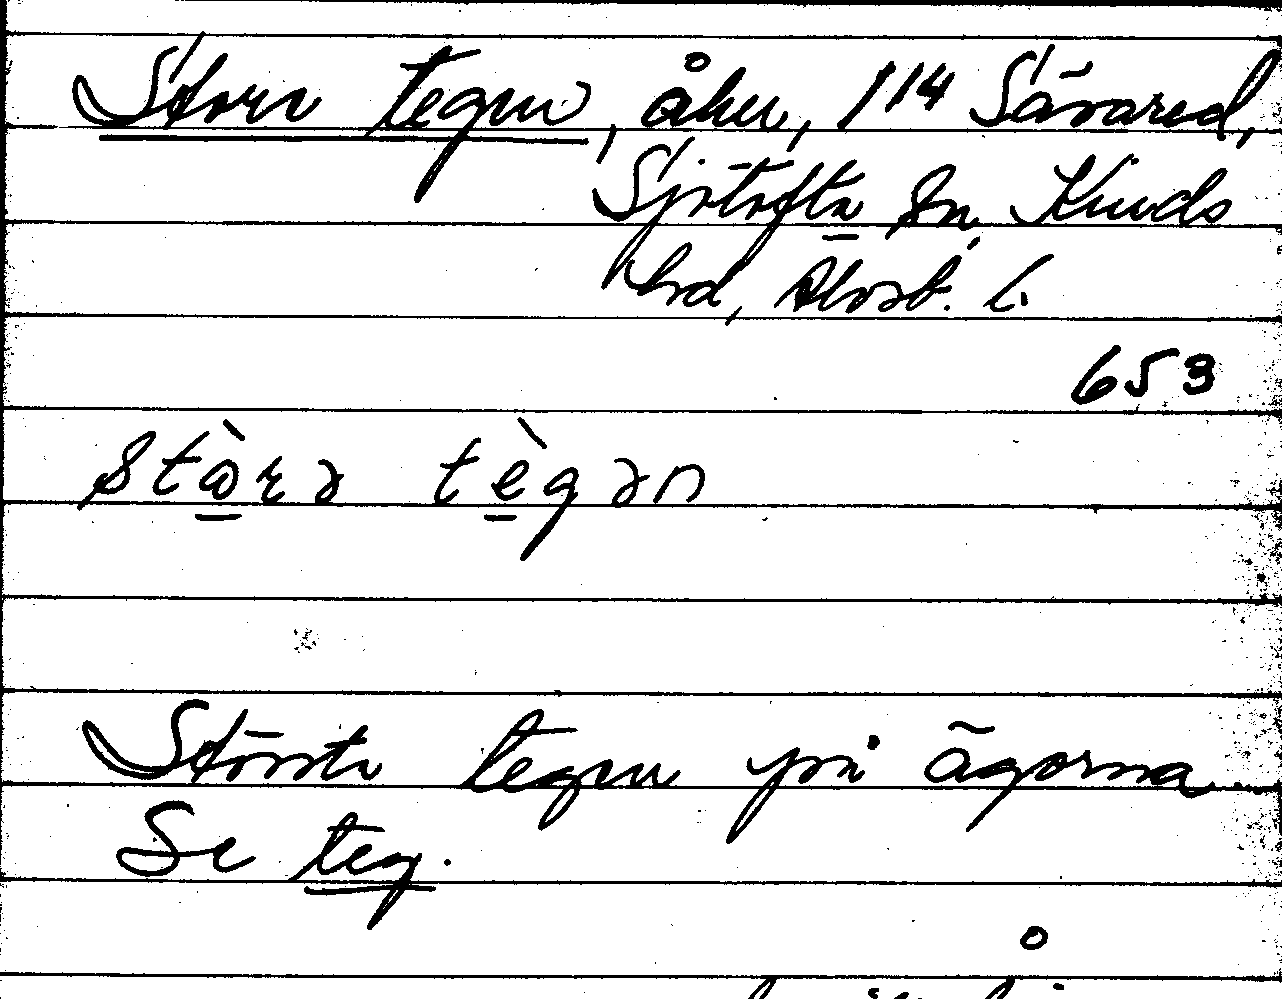 Store tegen, åker, 1/14 Sävared,
Sjötofta sn, Kinds
hd, Älvsb. l.
653
stòrə tègən
Största tegen på ägorna.
Se teg.